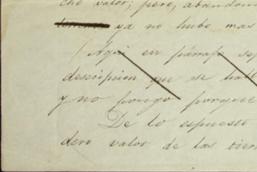 che valor; pero, abandon
ya no hubo mas
Aqui en párrafo sep
descripcion que se hall
y no pongo porque
De lo espuesto
dero valor de las tier